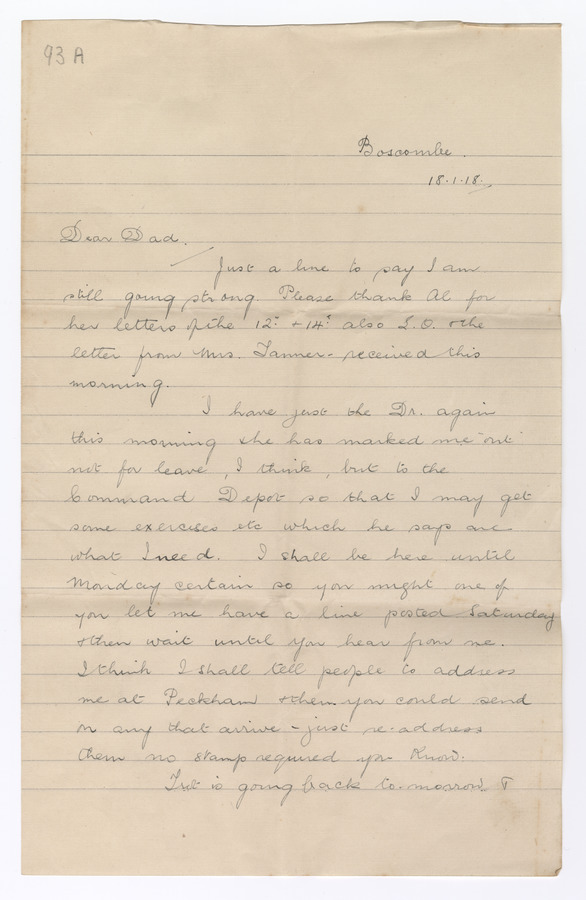 93A
Boscombe.
18.1.18.
Dear Dad.
Just a line to say I am
still going strong. Please thank Al for
her letters of the 12th + 14th also S.O. + the
letter from Mrs. Tanner - received this
morning.
I have just the Dr. again
this morning + he has marked me "out"
not for leave, I think, but to the
Command Depot so that I may get
some exercises etc which he says are
what I need. I shall be here until
Monday certain so you might one of
you let me have a line posted Saturday
+ then wait until you hear from me.
I think I shall tell people to address
me at Peckham + then you could send
on any that arrive - just re-address
them no stamp required you know.
is going back to-morrow